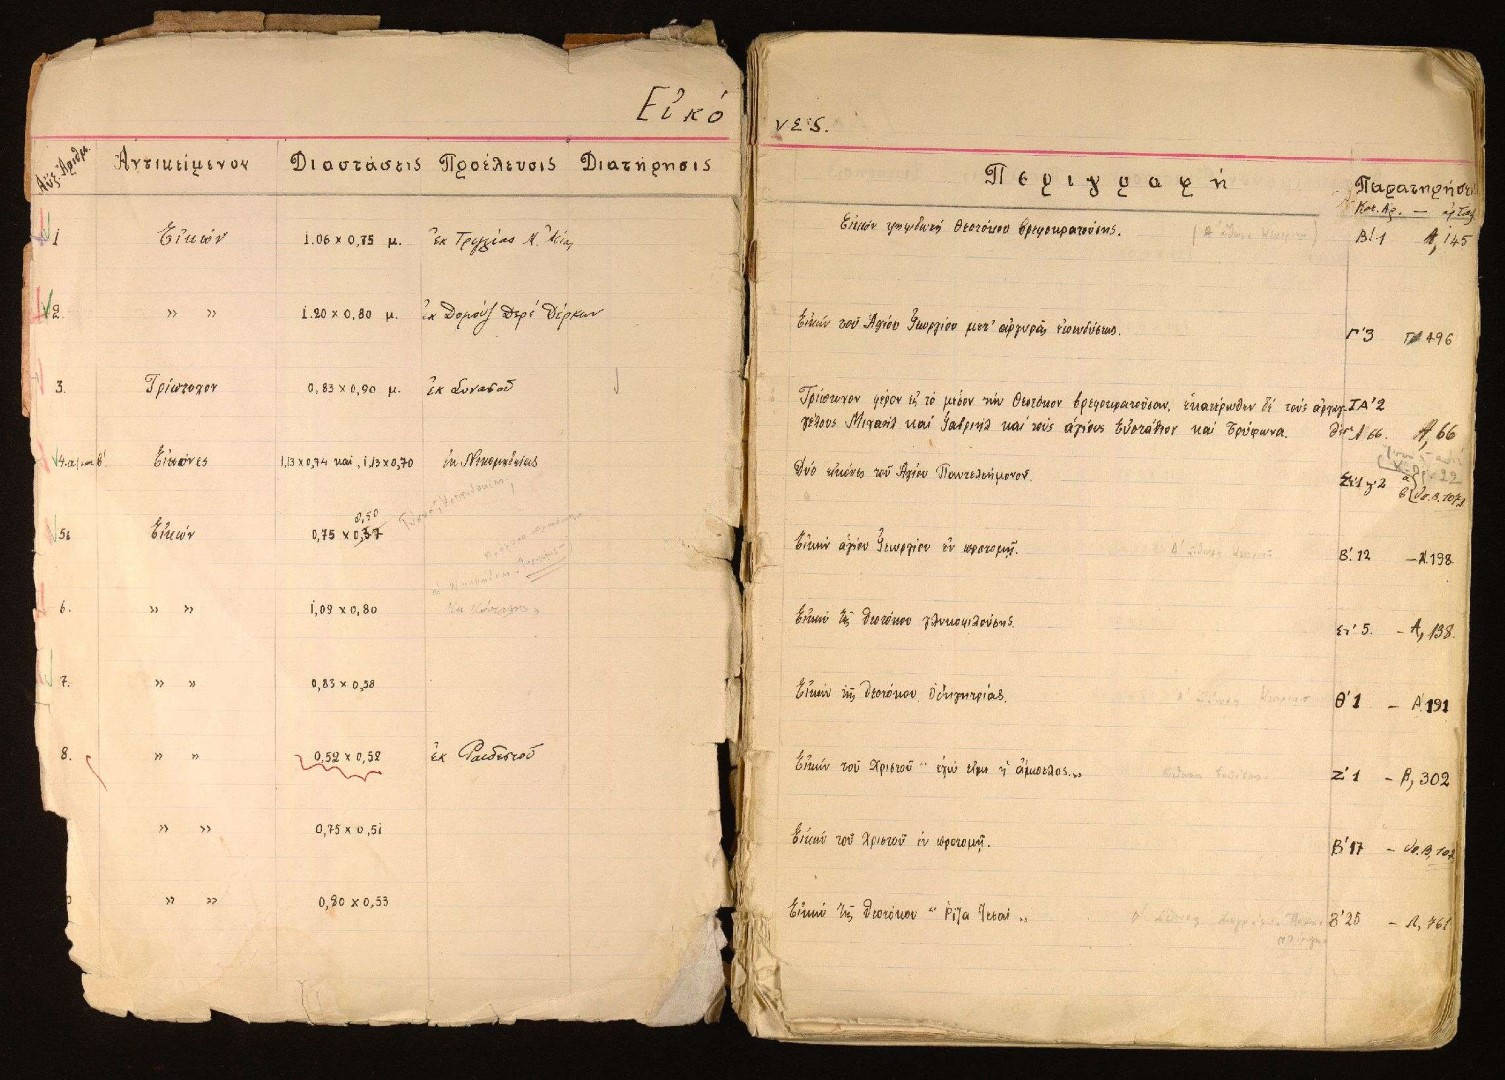 Εἰκό
νες.
Αὔξ. Ἀριθμ. Ἀντικείμενον Διαστάσεις Προέλευσις Διατήρησις Περιγραφή Παρατηρήσεις
Κατ. Ἀρ. —
1 Εἰκών 1.06 x 0,75 μ. ἐκ Τριγλίας Μ. Ἀσίας Εἰκών ψηφιδωτή Θεοτόκου βρεφοκρατούσης. Β΄.1 Α, 145
2. " " 1.20 x 0,80 μ. ἐκ Δομούζ Δερέ Δέρκων Εἰκών τοῦ Ἁγίου Γεωργίου μετ' ἀργυρᾶς ἐπενδύσεως. Γ΄3 496
3. Τρίπτυχον 0,83 x 0,90 μ. ἐκ Σινασοῦ Τρίπτυχον φέρον εἰς τὸ μέσον τὴν Θεοτόκον βρεφοκρατοῦσαν, ἑκατέρωθεν δὲ τοὺς ἀρχαγ- ΙΑ΄2
γέλους Μιχαήλ καὶ Γαβριήλ καὶ τοὺς ἁγίους Εὐστάθιον καὶ Τρύφωνα. Α 66. Α, 66
4. α΄ καὶ β΄ Εἰκόνες 1,13 x 0,74 καὶ 1,13 x 0,70 ἐκ Νικομηδείας Δύο εἰκόνες τοῦ Ἁγίου Παντελεήμονος.
0,50
5. Εἰκών 0,75 x 0,57 Εἰκών ἁγίου Γεωργίου ἐν προτομῇ. Β΄.12 — Α 198
6. " " 1,09 x 0,80 Εἰκών τῆς Θεοτόκου γλυκοφιλούσης. Στ΄ 5. — Α, 138.
7. " " 0,83 x 0,58 Εἰκών τῆς Θεοτόκου ὁδηγητρίας. Θ΄1 — Α 191
8. " " 0,52 x 0,52 ἐκ Ραιδεστοῦ Εἰκών τοῦ Χριστοῦ " ἐγώ εἰμι ἡ ἄμπελος." Ζ΄1 — Β, 302
" " 0,75 x 0,51 Εἰκών τοῦ Χριστοῦ ἐν προτομῇ. Β΄17
" " 0,80 x 0,53 Εἰκών τῆς Θεοτόκου " Ρίζα Ἰεσαί " Β΄25 — Α, 761